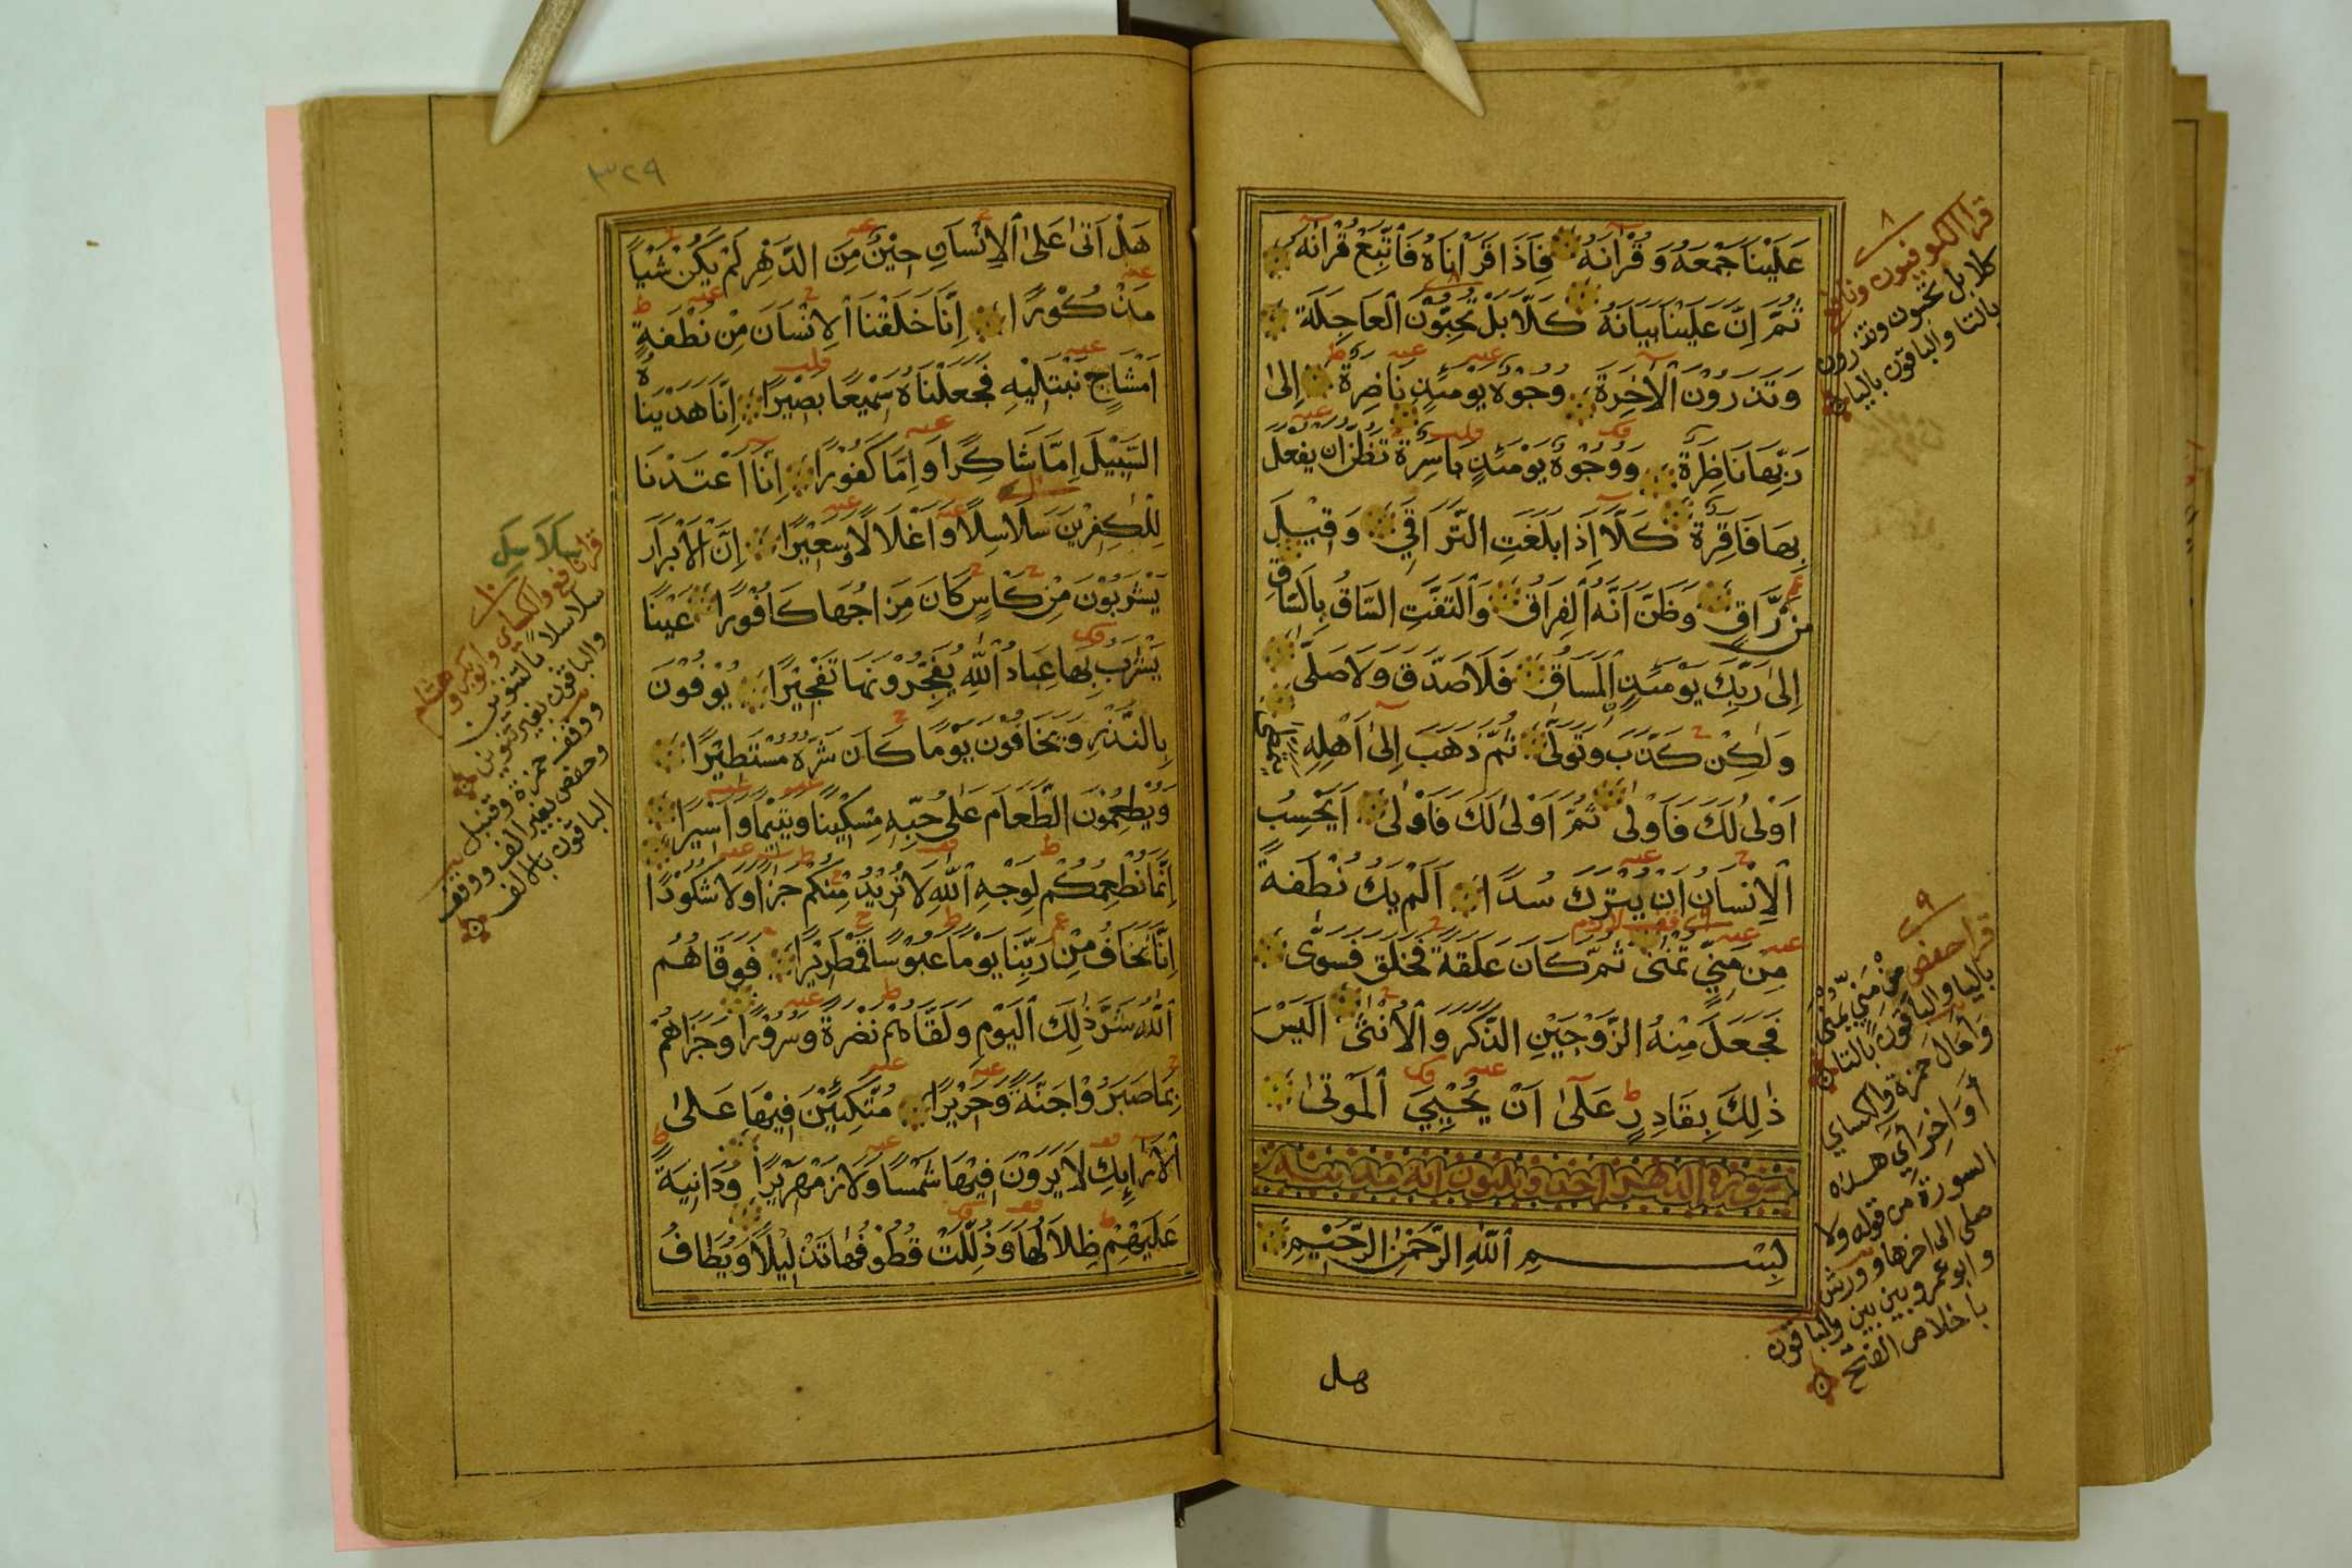 عَلَيْنَا جَمْعَهُ وَقُرْاٰنَهُ فَاِذَا قَرَأْنَاهُ فَاتَّبِعْ قُرْاٰنَهُ
ثُمَّ اِنَّ عَلَيْنَا بَيَانَهُ كَلَّا بَلْ تُحِبُّوْنَ الْعَاجِلَةَ
وَتَذَرُوْنَ الْاٰخِرَةَ وُجُوْهٌ يَوْمَئِذٍ نَاضِرَةٌ اِلٰى
رَبِّهَا نَاظِرَةٌ وَوُجُوْهٌ يَوْمَئِذٍ بَاسِرَةٌ تَظُنُّ اَنْ يُفْعَلَ
بِهَا فَاقِرَةٌ كَلَّا اِذَا بَلَغَتِ التَّرَاقِيَ وَقِيْلَ
مَنْ رَّاقٍ وَظَنَّ اَنَّهُ الْفِرَاقُ وَالْتَفَّتِ السَّاقُ بِالسَّاقِ
اِلٰى رَبِّكَ يَوْمَئِذٍ الْمَسَاقُ فَلَا صَدَّقَ وَلَا صَلّٰى
وَلٰكِنْ كَذَّبَ وَتَوَلّٰى ثُمَّ ذَهَبَ اِلٰى اَهْلِهِ يَتَمَطّٰى
اَوْلٰى لَكَ فَاَوْلٰى ثُمَّ اَوْلٰى لَكَ فَاَوْلٰى اَيَحْسِبُ
الْاِنْسَانُ اَنْ يُتْرَكَ سُدًا اَلَمْ يَكُ نُطْفَةً
مِنْ مَنِيٍّ تُمْنٰى ثُمَّ كَانَ عَلَقَةً فَخَلَقَ فَسَوّٰى
فَجَعَلَ مِنْهُ الزَّوْجَيْنِ الذَّكَرَ وَالْاُنْثٰى اَلَيْسَ
ذٰلِكَ بِقَادِرٍ عَلٰى اَنْ يُحْيِيَ الْمَوْتٰى
سورة الدهر احد وثلثون اية مدنية
بِسْمِ اللّٰهِ الرَّحْمٰنِ الرَّحِيْمِ
هل
٨
قرا الكوفيون ونافع
كلا بل تحبون وتذرون
بالتا والباقون باليا
٩
قرا حفص من مَنِيٍّ يُمْنٰى
باليا والباقون بالتا
وامال حمزة والكساي
اواخر آي هذه
السورة من قوله ولا
صلى الى اخرها وورش
وابو عمرو بين بين والباقون
باخلاص الفتح
٣٢٩
هَلْ اَتٰى عَلَى الْاِنْسَانِ حِيْنٌ مِنَ الدَّهْرِ لَمْ يَكُنْ شَيْاً
مَذْكُوْرًا اِنَّا خَلَقْنَا الْاِنْسَانَ مِنْ نُطْفَةٍ
اَمْشَاجٍ نَبْتَلِيْهِ فَجَعَلْنَاهُ سَمِيْعًا بَصِيْرًا اِنَّا هَدَيْنَاهُ
السَّبِيْلَ اِمَّا شَاكِرًا وَاِمَّا كَفُوْرًا اِنَّا اَعْتَدْنَا
لِلْكٰفِرِيْنَ سَلَاسِلًا وَاَغْلَالًا وَسَعِيْرًا اِنَّ الْاَبْرَارَ
يَشْرَبُوْنَ مِنْ كَاْسٍ كَانَ مِزَاجُهَا كَافُوْرًا عَيْنًا
يَشْرَبُ بِهَا عِبَادُ اللّٰهِ يُفَجِّرُوْنَهَا تَفْجِيْرًا يُوْفُوْنَ
بِالنَّذْرِ وَيَخَافُوْنَ يَوْمًا كَانَ شَرُّهُ مُسْتَطِيْرًا
وَيُطْعِمُوْنَ الطَّعَامَ عَلٰى حُبِّهِ مِسْكِيْنًا وَيَتِيْمًا وَاَسِيْرًا
اِنَّمَا نُطْعِمُكُمْ لِوَجْهِ اللّٰهِ لَا نُرِيْدُ مِنْكُمْ جَزَآءً وَلَا شُكُوْرًا
اِنَّا نَخَافُ مِنْ رَبِّنَا يَوْمًا عَبُوْسًا قَمْطَرِيْرًا فَوَقَاهُمُ
اللّٰهُ شَرَّ ذٰلِكَ الْيَوْمِ وَلَقَّاهُمْ نَضْرَةً وَسُرُوْرًا وَجَزَاهُمْ
بِمَا صَبَرُوْا جَنَّةً وَحَرِيْرًا مُتَّكِئِيْنَ فِيْهَا عَلَى
الْاَرَائِكِ لَا يَرَوْنَ فِيْهَا شَمْسًا وَلَا زَمْهَرِيْرًا وَدَانِيَةً
عَلَيْهِمْ ظِلَالُهَا وَذُلِّلَتْ قُطُوْفُهَا تَذْلِيْلًا وَيُطَافُ
سَلَاسِلَ
١٠
قرا نافع والكساي وابوبكر وهشام
سلاسلا بالتنوين
والباقون بغير تنوين
ووقف حمزة وقنبل
وحفص بغير الف ووقف
الباقون بالالف